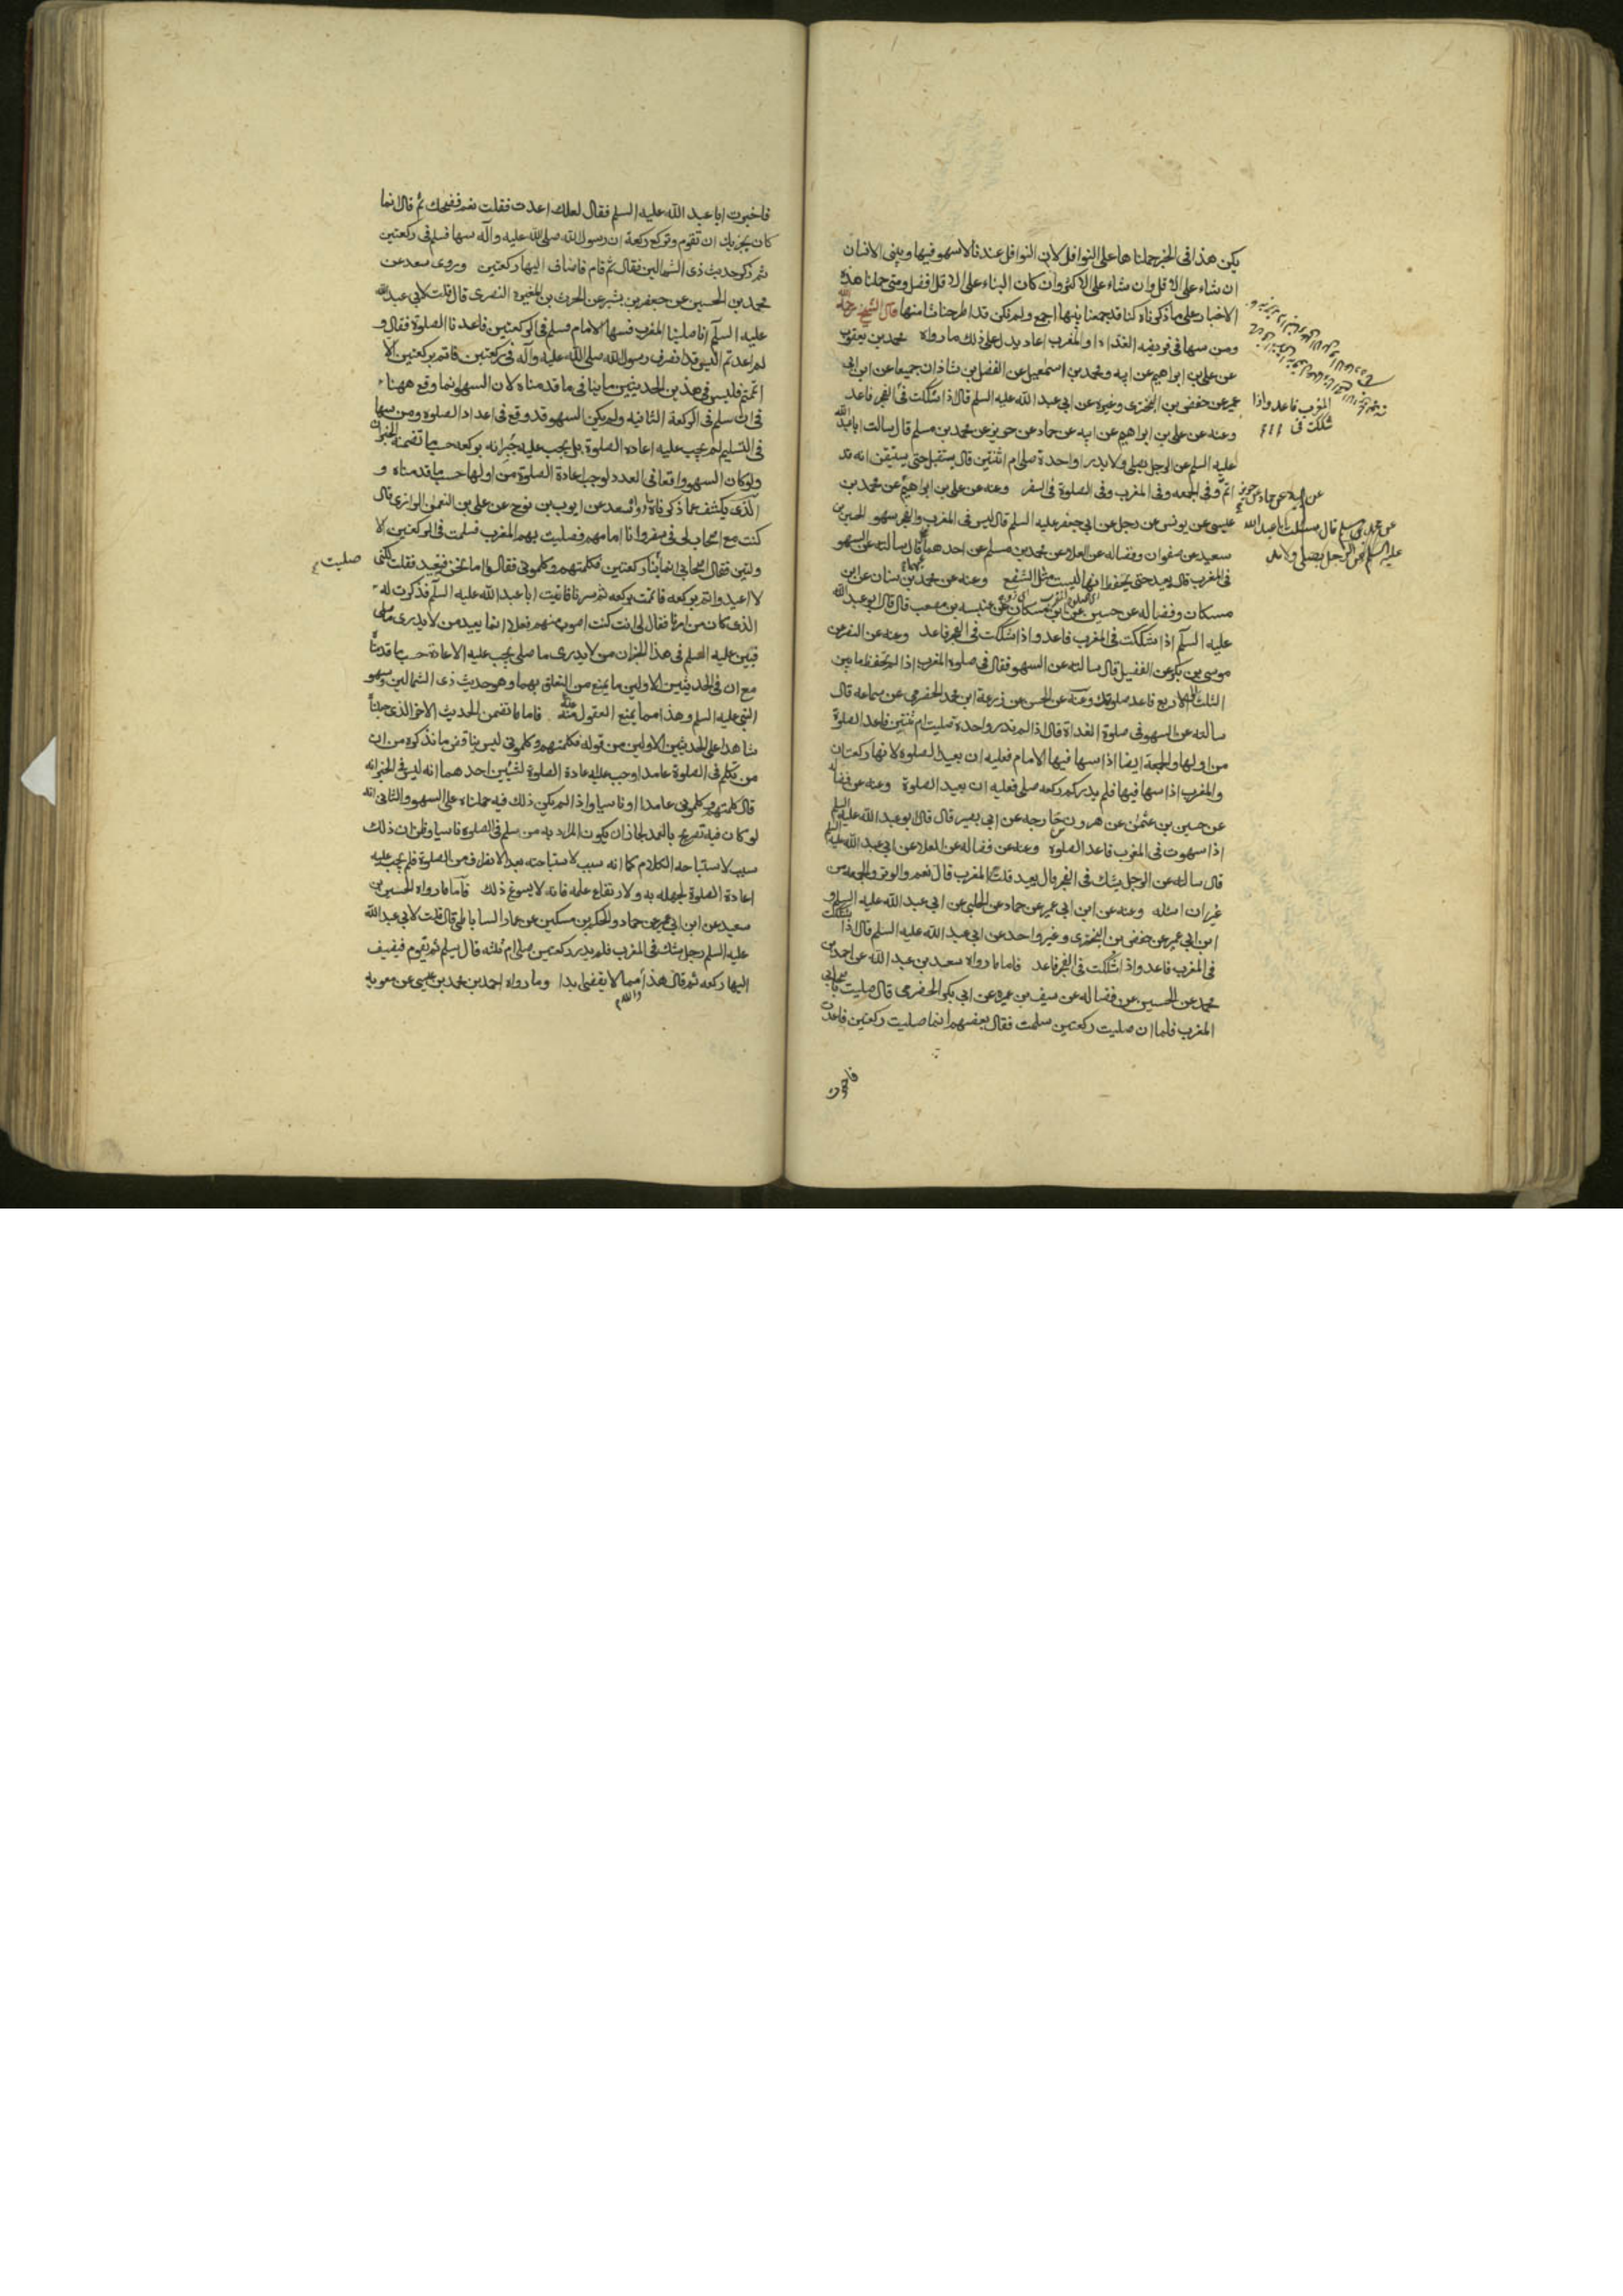 يكن هذا فى الخبر حملناها على النوافل لان النوافل عندنا لا سهو فيها ويبنى الانسان
ان شاء على الاقل وان شاء على الاكثر وان كان البناء على الاقل افضل ومتى حملنا هذه
الاخبار على ما ذكرناه كنا قد جمعنا بينها اجمع ولم نكن قد اطرحنا شيئا منها قال الشيخ رحمه الله
ومن سها فى فريضه الغداة او المغرب اعاد يدل على ذلك ما رواه محمد بن يعقوب
عن على بن ابراهيم عن ابيه ومحمد بن اسمعيل عن الفضل بن شاذان جميعا عن ابن ابى
عمير عن حفص بن البخترى وغيره عن ابى عبد الله عليه السلم قال اذا شككت فى الفجر فاعد
المغرب فاعد واذا
شككت فى
وعنه عن على بن ابراهيم عن ابيه عن حماد عن حريز عن محمد بن مسلم قال سالت ابا عبد الله
عليه السلم عن الرجل يصلى ولا يدرا واحدة صلى ام اثنتين قال يستقبل حتى يستيقن انه قد
اتم وفى الجمعه وفى المغرب وفى الصلوة فى السفر وعنه عن على بن ابراهيم عن محمد بن
عن ابيه عن حماد عن حريز
عن محمد بن مسلم قال سالت ابا عبد الله
عليه السلم عن الرجل يصلى ولا
عيسى عن يونس عن رجل عن ابى جعفر عليه السلم قال ليس فى المغرب والفجر سهو الحسين بن
سعيد عن صفوان وفضاله عن العلا عن محمد بن مسلم عن احدهما قال سالته عن السهو
فى المغرب قال يعيد حتى يحفظ انها ليست مثل الشفع وعنه عن محمد بن سنان عن ابن
مسكان وفضاله عن حسين عن ابن مسكان عن عنبسه بن مصعب قال قال ابو عبد الله
عليه السلم اذا شككت فى المغرب فاعد واذا شككت فى الفجر فاعد وعنه عن النضر عن
موسى بن بكر عن الفضيل قال سالته عن السهو فقال فى صلوه المغرب اذا لم تحفظ ما بين
الثلث الى الاربع فاعد صلوتك وعنه عن الحسن عن زرعة ابن محمد الحضرمى عن سماعه قال
سالته عن السهو فى صلوة الغداة قال اذا لم تدر واحدة صليت ام ثنتين فاعد الصلوة
من اولها والجمعة ايضا اذا سها فيها الامام فعليه ان يعيد الصلوه لانها ركعتان
والمغرب اذا سها فيها فلم يدر كم ركعه صلى فعليه ان يعيد الصلوة وعنه عن فضاله
عن حسين بن عثمن عن هرون بن خارجه عن ابى بصير قال قال ابو عبد الله عليه السلم
اذا سهوت فى المغرب فاعد الصلوة وعنه عن فضاله عن العلا عن ابى عبد الله عليه السلم
قال سالته عن الرجل يشك فى الفجر قال يعيد قلت المغرب قال نعم والوتر والجمعه من
غير ان اسئله وعنه عن ابن ابى عمير عن حماد عن الحلبى عن ابى عبد الله عليه السلم و
ابن ابى عمير عن حفص بن البخترى وغير واحد عن ابى عبد الله عليه السلم قال اذا شككت
فى المغرب فاعد واذا شككت فى الفجر فاعد فاما ما رواه سعيد بن عبد الله عن احمد بن
محمد عن الحسين عن فضاله عن سيف بن عميره عن ابى بكر الحضرمى قال صليت باصحابى
المغرب فلما ان صليت ركعتين سلمت فقال بعضهم انما صليت ركعتين فاعدت
فاخبرت
فاخبرت ابا عبد الله عليه السلم فقال لعلك اعدت فقلت نعم فضحك ثم قال انما
كان يجزيك ان تقوم وتركع ركعة ان رسول الله صلى الله عليه وآله سها فسلم فى ركعتين
ثم ذكر حديث ذى الشمالين فقال ثم قام فاضاف اليها ركعتين وروى سعد عن
محمد بن الحسين عن جعفر بن بشير عن الحرث بن المغيرة النصرى قال قلت لابى عبد الله
عليه السلم انا صلينا المغرب فسها الامام فسلم فى الركعتين فاعدنا الصلوة فقال و
لم اعدتم اليس قد انصرف رسول الله صلى الله عليه وآله فى ركعتين فاتم بركعتين الا
اتممتم فليس فى هذين الحديثين ما ينافى ما قدمناه لان السهو انما وقع ههنا
فى ان سلم فى الركعة الثانيه ولم يكن السهو قد وقع فى اعداد الصلوه ومن سها
فى التسليم لم يجب عليه اعاده الصلوة بل يجب عليه جبرانه بركعه حسبما تضمنه الخبران
ولو كان السهو واقعا فى العدد لوجب اعادة الصلوة من اولها حسب ما قدمناه و
الذى يكشف عما ذكرناه ما رواه سعد عن ايوب بن نوح عن على بن النعمن الرازى قال
كنت مع اصحاب لى فى سفر وانا امامهم فصليت بهم المغرب فسلمت فى الركعتين الا
ولتين فقال اصحابى انما صليت بنا ركعتين فكلمتهم وكلمونى فقالوا اما نحن فنعيد فقلت لكنى
صليت
لا اعيد واتم بركعه فاتممت بركعه ثم سرنا فاتيت ابا عبد الله عليه السلم فذكرت له
الذى كان من امرنا فقال لى انت كنت اصوب منهم فعلا انما يعيد من لا يدرى ما صلى
فبين عليه السلم فى هذا الخبر ان من لا يدرى ما صلى يجب عليه الاعادة حسب ما قدمناه
مع ان فى الحديثين الاولين ما يمنع من التعلق بهما وهو حديث ذى الشمالين وسهو
النبى عليه السلم وهذا مما يمنع العقول منه فاما ما تضمن الحديث الاخر الذى جعلناه
شاهدا على الحديثين الاولين من قوله فكلمتهم وكلمونى ليس يناقض ما نذكره من ان
من تكلم فى الصلوة عامدا وجب عليه اعادة الصلوة لشيئين احدهما انه ليس فى الخبر انه
قال كلمتهم وكلمونى عامدا او ناسيا واذا لم يكن ذلك فيه حملناه على السهو والثانى انه
لو كان فيه تصريح بالعمد لجاز ان يكون المراد به من سلم فى الصلوه ناسيا وظن ان ذلك
سبب لاستباحه الكلام كما انه سبب لاستباحته بعد الانصراف من الصلوة فلم يجب عليه
اعادة الصلوة لجهله به ولارتفاع علمه فانه لا يسوغ ذلك فاما ما رواه الحسين بن
سعيد عن ابن ابى عمير عن حماد والحكم بن مسكين عن عمار الساباطى قال قلت لابى عبد الله
عليه السلم رجل شك فى المغرب فلم يدر ركعتين صلى ام ثلثه قال يسلم ثم يقوم فيضيف
اليها ركعه ثم قال هذا مما لا يقضى ابدا وما رواه احمد بن محمد بن عيسى عن معويه
والله